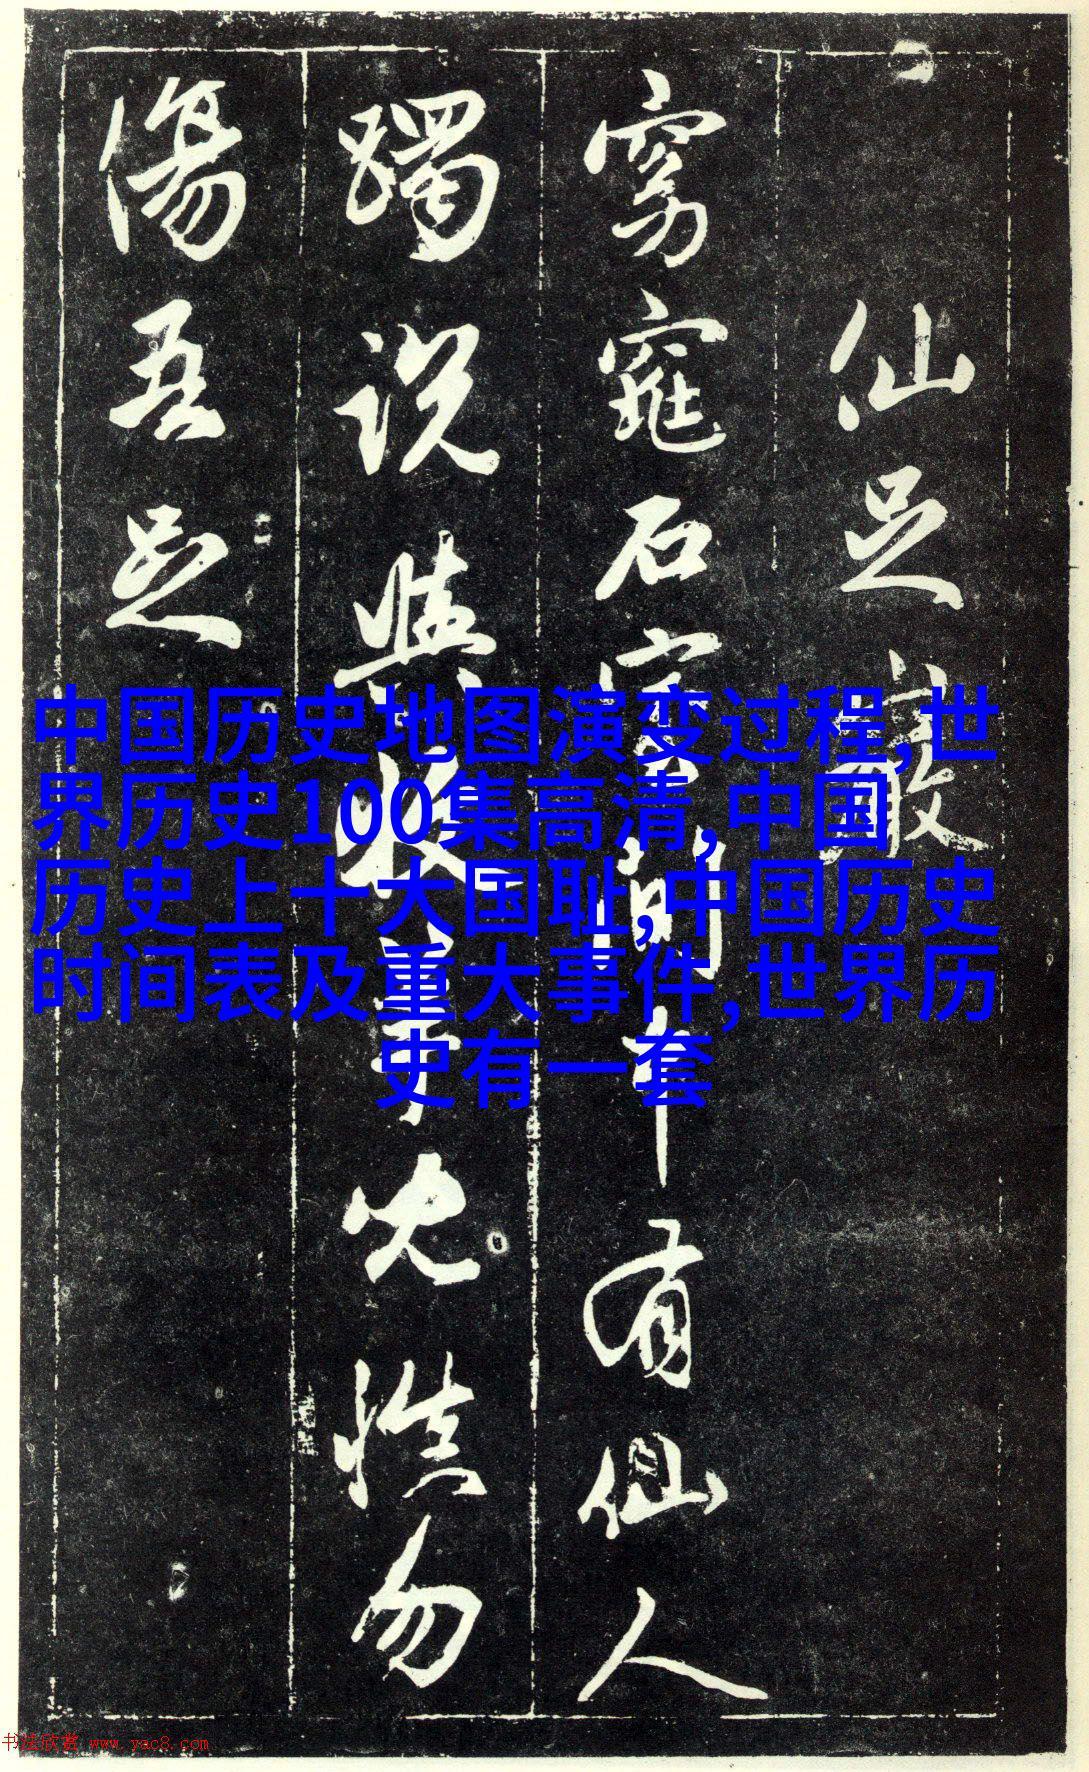 仙足巖
窈窕石室間中有仙人
躅説與牧兒愼勿
傷吾足
中国历史地图演变过程,世
界历史100集高清,中国
历史上十大国耻,中国历史
时间表及重大事件,世界历
史有一套
书法欣赏 www.yac8.com